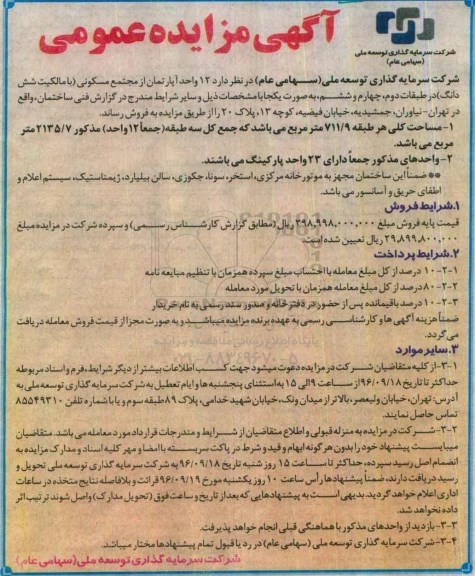 آگهی مزایده عمومی
شرکت سرمایه گذاری توسعه ملی
(سهامی عام)
شرکت سرمایه گذاری توسعه ملی (سـهامی عام) در نظر دارد ۱۲ واحد آپارتمان از مجتمع مسکونی (با مالکیت شش
دانگ) در طبقات دوم، چهارم و ششم، به صورت یکجا با مشخصات ذیل و سایر شرایط مندرج در گزارش فنی ساختمان، واقع
در تهران- نیاوران، جمشیدیه، خیابان فیضیه، کوچه ۱۳، پلاک ۲۰ را از طریق مزایده به فروش رساند.
۱- مساحت کلی هر طبقه ۷۱۱/۹ متر مربع می باشد که جمع کل سه طبقه (جمعاً ۱۲ واحد) مذکور ۲۱۳۵/۷ متر
مربع می باشد.
۲- واحدهای مذکور جمعاً دارای ۲۳ واحد پارکینگ می باشند.
** ضمناً این ساختمان مجهز به موتورخانه مرکزی، استخر، سونا، جکوزی، سالن بیلیارد، ژیمناستیک، سیستم اعلام و
اطفای حریق و آسانسور می باشد.
۱.شرایط فروش
قیمت پایه فروش مبلغ ۳۹۸,۹۹۸,۰۰۰,۰۰۰ ریال (مطابق گزارش کارشـناس رسـمی) و سپرده شرکت در مزایده مبلغ
۲۹,۸۹۹,۸۰۰,۰۰۰ ریال تعیین شده است.
۲.شرایط پرداخت
۲-۱- ۱۰ درصد از کل مبلغ معامله با احتساب مبلغ سپرده همزمان با تنظیم مبایعه نامه
۲-۲- ۸۰ درصد از کل مبلغ معامله همزمان با تحویل مورد معامله
۲-۳- ۱۰ درصد باقیمانده پس از حضور در دفترخانه و صدور سند رسمی به نام خریدار
ضمناً هزینه آگهی ها و کارشناسی رسمی به عهده برنده مزایده میباشد و به صورت مجزا از قیمت فروش معامله دریافت
می گردد.
۳.سایر موارد
۳-۱- از کلیه متقاضیان شرکت در مزایده دعوت میشود جهت کسب اطلاعات بیشتر از دیگر شرایط، فرم و اسناد مربوطه
حداکثر تا تاریخ ۹۶/۰۹/۱۸ از ساعت ۹ الی ۱۵ به استثنای پنجشنبه ها و ایام تعطیل به شرکت سرمایه گذاری توسعه ملی به
آدرس: تهران، خیابان ولیعصر، بالاتر از میدان ونک، خیابان شهید خدامی، پلاک ۸۹ طبقه سوم و یا با شماره تلفن ۸۵۵۴۹۳۱۰
تماس حاصل نمایند.
۳-۲- شرکت در مزایده به منزله قبولی و اطلاع متقاضیان از شرایط و مندرجات قرارداد مورد معامله می باشد. متقاضیان
میبایست پیشنهاد خود را بدون هر گونه ابهام و قید و شرط در پاکت سربسته با امضا و مهر کلیه اسناد و مدارک مزایده به
انضمام اصل رسید سپرده، حداکثر تا ساعت ۱۵ روز شنبه تاریخ ۹۶/۰۹/۱۸ به شرکت سرمایه گذاری توسعه ملی تحویل و
رسید دریافت دارند، ضمناً پیشنهادها رأس ساعت ۱۰ روز یکشنبه مورخ ۹۶/۰۹/۱۹ قرائت و بلافاصله نتایج متخذه در ساعات
اداری اعلام خواهد گردید. بدیهی است به پیشنهادهایی که بعد از تاریخ و ساعت فوق (تحویل مدارک) واصل شوند ترتیب اثر
داده نخواهد شد.
۳-۳- بازدید از واحدهای مذکور با هماهنگی قبلی انجام خواهد پذیرفت.
۳-۴- شرکت سرمایه گذاری توسعه ملی (سهامی عام) در رد یا قبول تمام پیشنهادها مختار میباشد.
شرکت سرمایه گذاری توسعه ملی (سهامی عام)